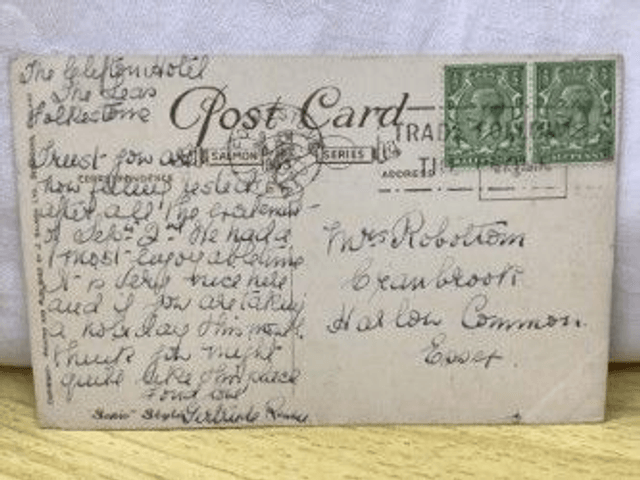 The Clifton Hotel
The Leas
Folkestone
Post Card
SALMON SERIES
CORRESPONDENCE
ADDRESS
TRADE FOLLOWS
THE
Trust you are
now feeling rested
after all the excitement
of Sept 2nd We had a
most enjoyable time
It is very nice here
and if you are taking
a holiday this month
think you might
quite like this place
Fond love
Gertrude
Mrs Robottom
Cranbrook
Harlow Common
Essex.